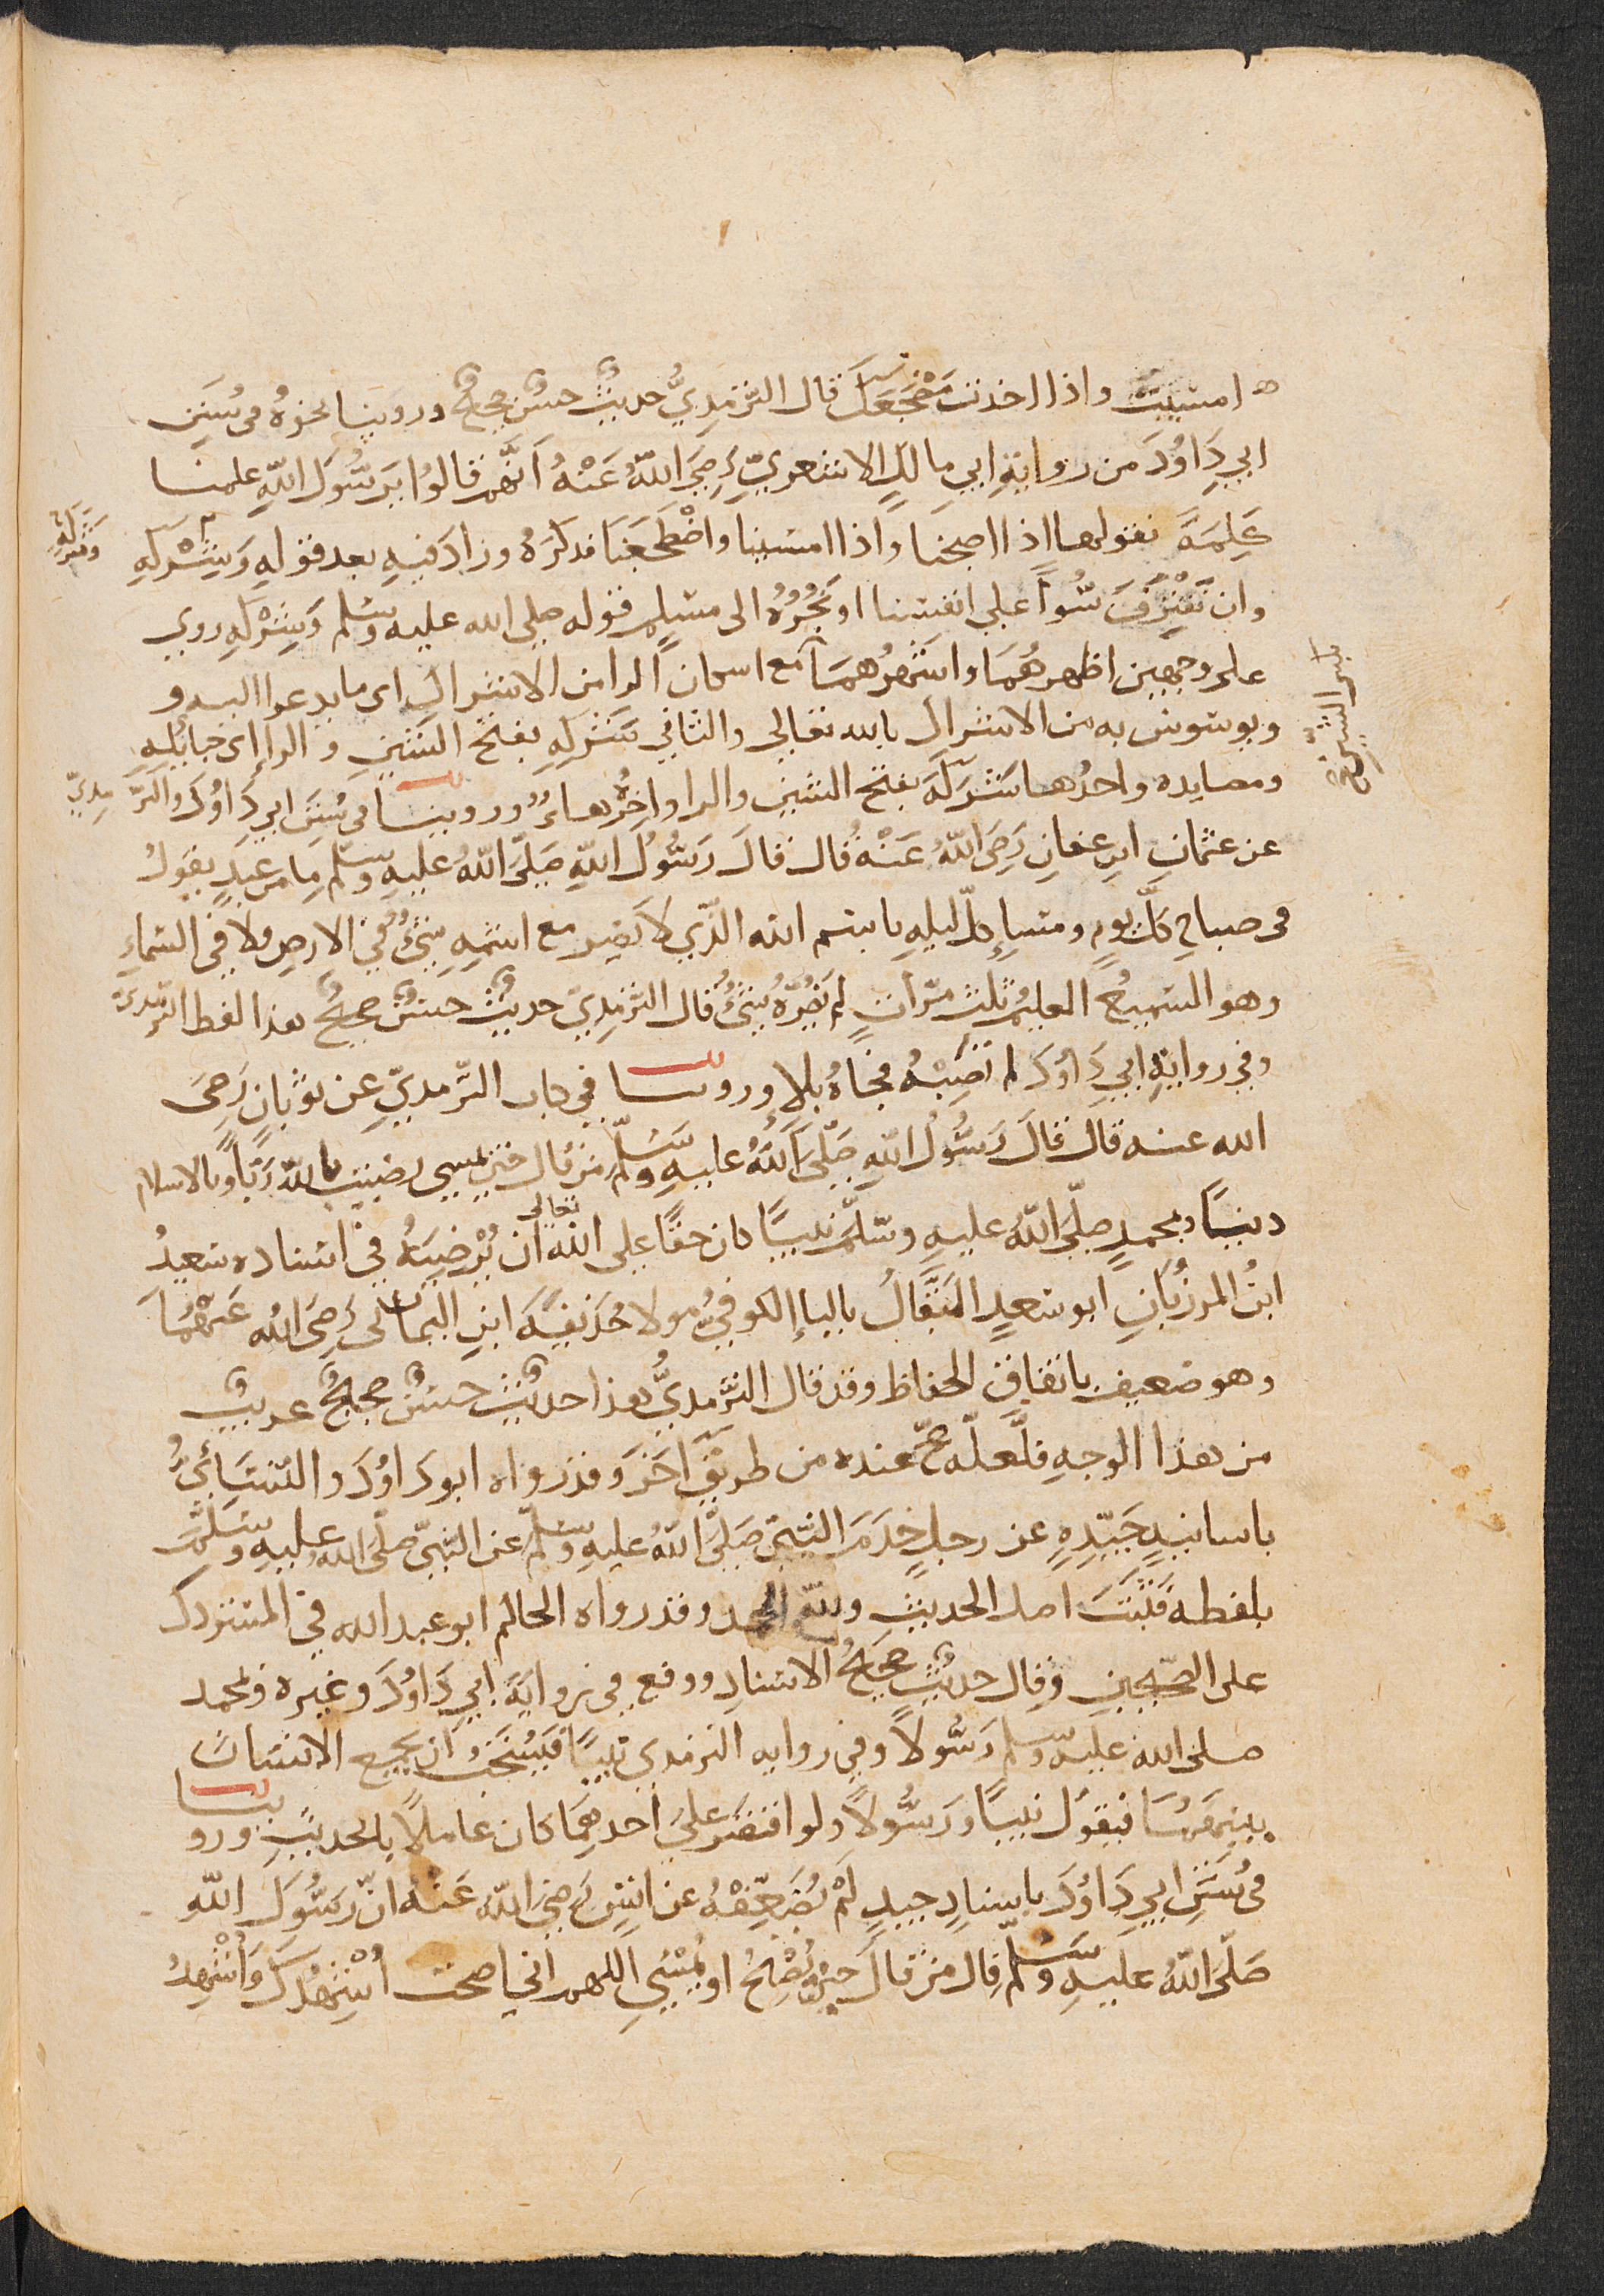 امسيت واذا اخذت مَضْجَعَكَ قال الترّمِذِيُّ حديثٌ حسنٌ صحيحٌ وروينا نحوهُ في سُنَنِ
ابي دَاوُدَ من روايةِ ابي مالكٍ الاشعريّ رَضِيَ اللّٰهُ عَنْهُ اَنَّهُم قالوُا يَرسُولَ اللّٰهِ علمنا
كَلِمَةً نقولها اذا اصبحنا واذا امسينا واضْطَجَعْنَا فذكَرَهُ وزادَ فيهِ بعد قولِهِ وَشِرْكِهِ
وَشَرَكِهِ
وان نَقْتَرِفَ سُوأً على انفسنا اونَجُرُّهُ الى مسلمٍ قوله صلى الله عليه وسلم وَشِرْكِهِ روي
على وجهين اظهرهُمَا واشهرُهمَا مع اسكان الرا من الاشراك اى ما يدعوا اليه و
بكسر الشين صح
ويوسوس به من الاشراك بالله تعالي والثاني شَرَكِهِ بفتح الشين والرا اى حبايلِهِ
ومصايده واحدُها شَرَكَه بفتح الشين والرا واخرُهُ هاءٌ وروينا في سُنَنِ ابي دَاوُدَ والترمِذِيّ
عن عثمانِ ابنِ عفانِ رَضِيَ اللّٰهُ عَنْهُ قال قالَ رَسُولُ اللّٰهِ صَلَّى اللّٰهُ عليهِ وسلّم ما من عبدٍ يقولُ
في صباحِ كلِّ يومٍ ومساءِ كلِّ ليلهٍ بابسم الله الّذي لا يضر مع اسمِهِ شيءٌ في الارضِ ولا في السّماءِ
وهو السّميعُ العليمُ ثلثَ مرّاتٍ لم يَضُرَّهُ شيْءٌ قال الترّمِذِيّ حديثٌ حسنٌ صحيحٌ هذا لفظ الترّمذيّ
وفي روايةِ ابي دَاوُدَ لم تُصِبْهُ فجأةُ بلاءٍ وروينا في كتاب الترّمذيّ عن ثوْبانِ رَضِيَ
الله عنه قالَ قالَ رَسُولُ اللّٰهِ صَلَّى اللّٰهُ عليهِ وسَلّمَ من قال حين يمسي رضيت باللّٰه رَبّاً وبالاسلام
ديناً وبمحمدٍ صَلّى اللّٰهُ عليهِ وسَلّمَ نبيًّا كان حقًّا على الله تعالى ان يُرْضِيَهُ في اسناده سَعيدُ
ابنُ المرزُبَانِ ابو سَعيدٍ البَقَّالُ بالباءِ الكوفيُّ مولا حُذَيفَةَ ابنِ اليمان رَضِيَ اللّٰه عَنهُمَا
وهو ضعيف باتفاق الحفاظ وقد قال الترّمذيُّ هذا حديثٌ حسنٌ صحيحٌ غريبٌ
من هذا الوجهِ فلَعلّه صَحّ عنده من طريقٍ اخَرَ وقد رواه ابو دَاوُدَ والنّسَائيُّ
باسانيدٍ جَيّدهٍ عن رجلٍ خَدَمَ النّبيّ صَلّى اللّٰهُ عليهِ وسَلّمَ عن النّبيّ صَلّى اللّٰه عليهِ وسَلّمَ
بلفظه فثَبَتَ اصل الحديثِ ولله الحمد وقد رواه الحاكم ابو عبد الله في المستدرك
على الصّحيحين وقال حديثٌ صحيحُ الاسنادِ ووقع في رِوايَةِ ابي دَاوُدَ وغيره وبمحمد
صلى الله عليه وسلم رَسُولاً وفي روايه الترمذي نبيًّا فيُستَحَبُّ ان يجمع الانسانُ
بينهمَا فيقول نبيًا ورَسُولاً ولو اقتصَر علىَ احدهِمَا كان عاملاً بالحديثِ وروينا
في سُنَنِ ابي دَاوُدَ باسنادٍ جيدٍ لَمْ يُضَعِّفْهُ عن انسٍ رَضِيَ اللّٰه عَنْهُ انّ رَسُولَ اللّٰهِ
صَلّى اللّٰهُ عليهِ وسَلّم قال من قالَ حِينَ يُصْبِحُ او يُمْسِي اللهم اني اصبحت اُشْهِدُكَ وَاُشْهِدُ